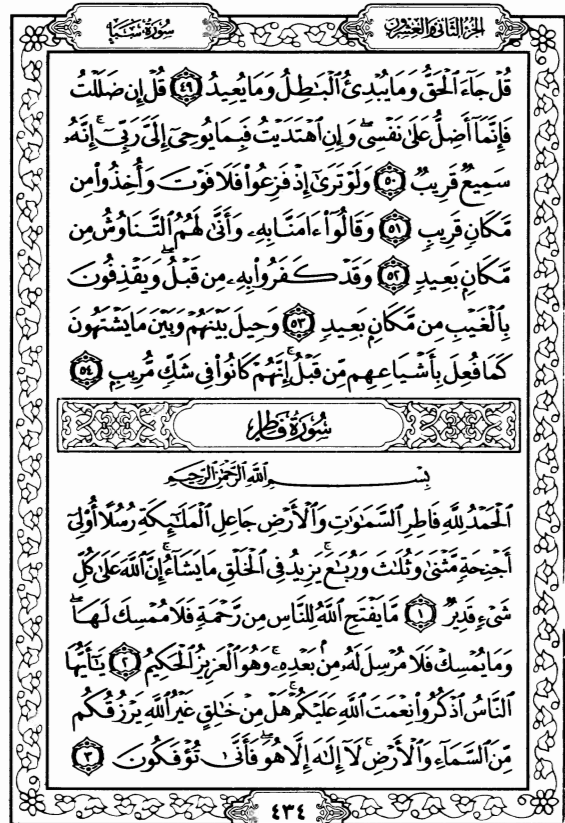 الجزء الثاني والعشرون
سورة سبإ
قُلْ جَآءَ ٱلْحَقُّ وَمَا يُبْدِئُ ٱلْبَٰطِلُ وَمَا يُعِيدُ ٤٩ قُلْ إِن ضَلَلْتُ
فَإِنَّمَآ أَضِلُّ عَلَىٰ نَفْسِى وَإِنِ ٱهْتَدَيْتُ فَبِمَا يُوحِىٓ إِلَىَّ رَبِّىٓ ۚ إِنَّهُۥ
سَمِيعٌ قَرِيبٌ ٥٠ وَلَوْ تَرَىٰٓ إِذْ فَزِعُوا۟ فَلَا فَوْتَ وَأُخِذُوا۟ مِن
مَّكَانٍ قَرِيبٍ ٥١ وَقَالُوٓا۟ ءَامَنَّا بِهِۦ وَأَنَّىٰ لَهُمُ ٱلتَّنَاوُشُ مِن
مَّكَانٍۭ بَعِيدٍ ٥٢ وَقَدْ كَفَرُوا۟ بِهِۦ مِن قَبْلُ ۖ وَيَقْذِفُونَ
بِٱلْغَيْبِ مِن مَّكَانٍۭ بَعِيدٍ ٥٣ وَحِيلَ بَيْنَهُمْ وَبَيْنَ مَا يَشْتَهُونَ
كَمَا فُعِلَ بِأَشْيَاعِهِم مِّن قَبْلُ ۚ إِنَّهُمْ كَانُوا۟ فِى شَكٍّ مُّرِيبٍۭ ٥٤
سورة فاطر
بِسْمِ ٱللَّهِ ٱلرَّحْمَٰنِ ٱلرَّحِيمِ
ٱلْحَمْدُ لِلَّهِ فَاطِرِ ٱلسَّمَٰوَٰتِ وَٱلْأَرْضِ جَاعِلِ ٱلْمَلَٰٓئِكَةِ رُسُلًا أُو۟لِىٓ
أَجْنِحَةٍ مَّثْنَىٰ وَثُلَٰثَ وَرُبَٰعَ ۚ يَزِيدُ فِى ٱلْخَلْقِ مَا يَشَآءُ ۚ إِنَّ ٱللَّهَ عَلَىٰ كُلِّ
شَىْءٍ قَدِيرٌ ١ مَّا يَفْتَحِ ٱللَّهُ لِلنَّاسِ مِن رَّحْمَةٍ فَلَا مُمْسِكَ لَهَا ۖ
وَمَا يُمْسِكْ فَلَا مُرْسِلَ لَهُۥ مِنۢ بَعْدِهِۦ ۚ وَهُوَ ٱلْعَزِيزُ ٱلْحَكِيمُ ٢ يَٰٓأَيُّهَا
ٱلنَّاسُ ٱذْكُرُوا۟ نِعْمَتَ ٱللَّهِ عَلَيْكُمْ ۚ هَلْ مِنْ خَٰلِقٍ غَيْرُ ٱللَّهِ يَرْزُقُكُم
مِّنَ ٱلسَّمَآءِ وَٱلْأَرْضِ ۚ لَآ إِلَٰهَ إِلَّا هُوَ ۖ فَأَنَّىٰ تُؤْفَكُونَ ٣
٤٣٤